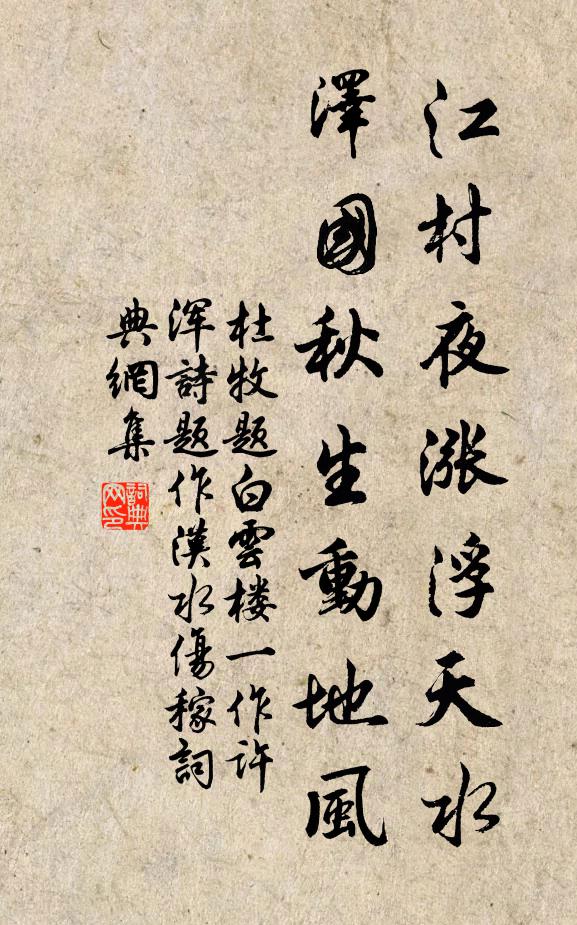 江村夜漲浮天水
澤國秋生動地風
杜牧題白雲楼一作許
浑詩題作漢水傷稼詞
典網集
詞典
网印